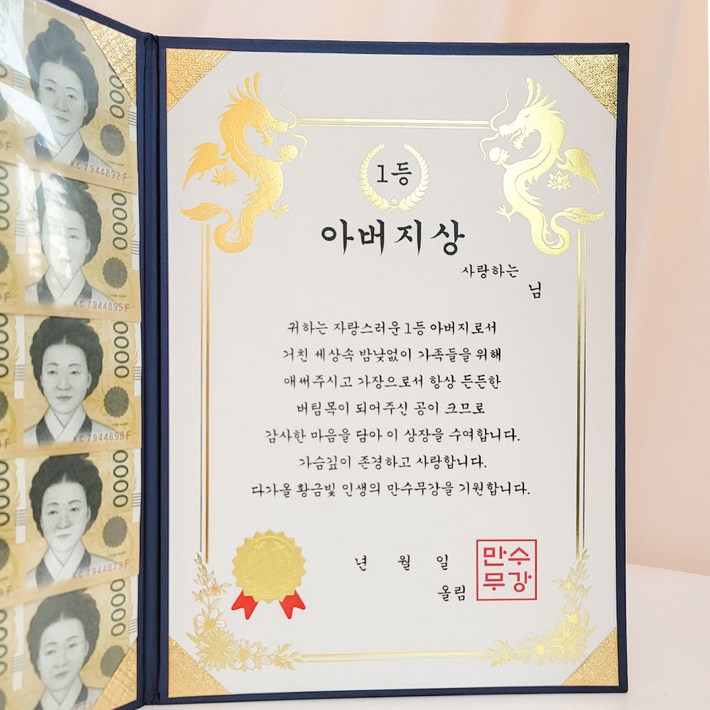 1등
아버지상
사랑하는
님
귀하는 자랑스러운 1등 아버지로서
거친 세상속 밤낮없이 가족들을 위해
애써주시고 가장으로서 항상 든든한
버팀목이 되어주신 공이 크므로
감사한 마음을 담아 이 상장을 수여합니다.
가슴깊이 존경하고 사랑합니다.
다가올 황금빛 인생의 만수무강을 기원합니다.
년 월 일
올림
만수
무강
0000
KC7944892F
0000
KC7944895F
0000
0000
0000